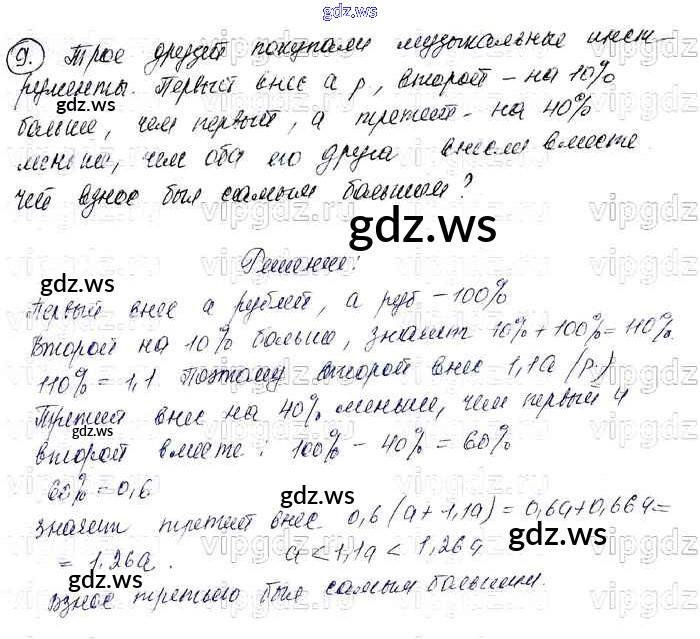 gdz.ws
9. Трое друзей покупали музыкальные инст-
рументы. Первый внес а р, второй - на 10%
больше, чем первый, а третий - на 40%
меньше, чем оба его друга внесли вместе.
Чей взнос был самым большим?
gdz.ws
gdz.ws
gdz.ws
Решение:
gdz.ws
Первый внес а рублей, а руб - 100%
Второй на 10% больше, значит 10% + 100% = 110%.
110% = 1,1 Поэтому второй внес 1,1а (р.)
Третий внес на 40% меньше, чем первый и
gdz.ws
второй вместе: 100% - 40% = 60%
60% = 0,6
gdz.ws
gdz.ws
значит третий внес 0,6(а + 1,1а) = 0,6а + 0,66а =
= 1,26а. а < 1,1а < 1,26а
gdz.ws
gdz.ws
Взнос третьего был самым большим.